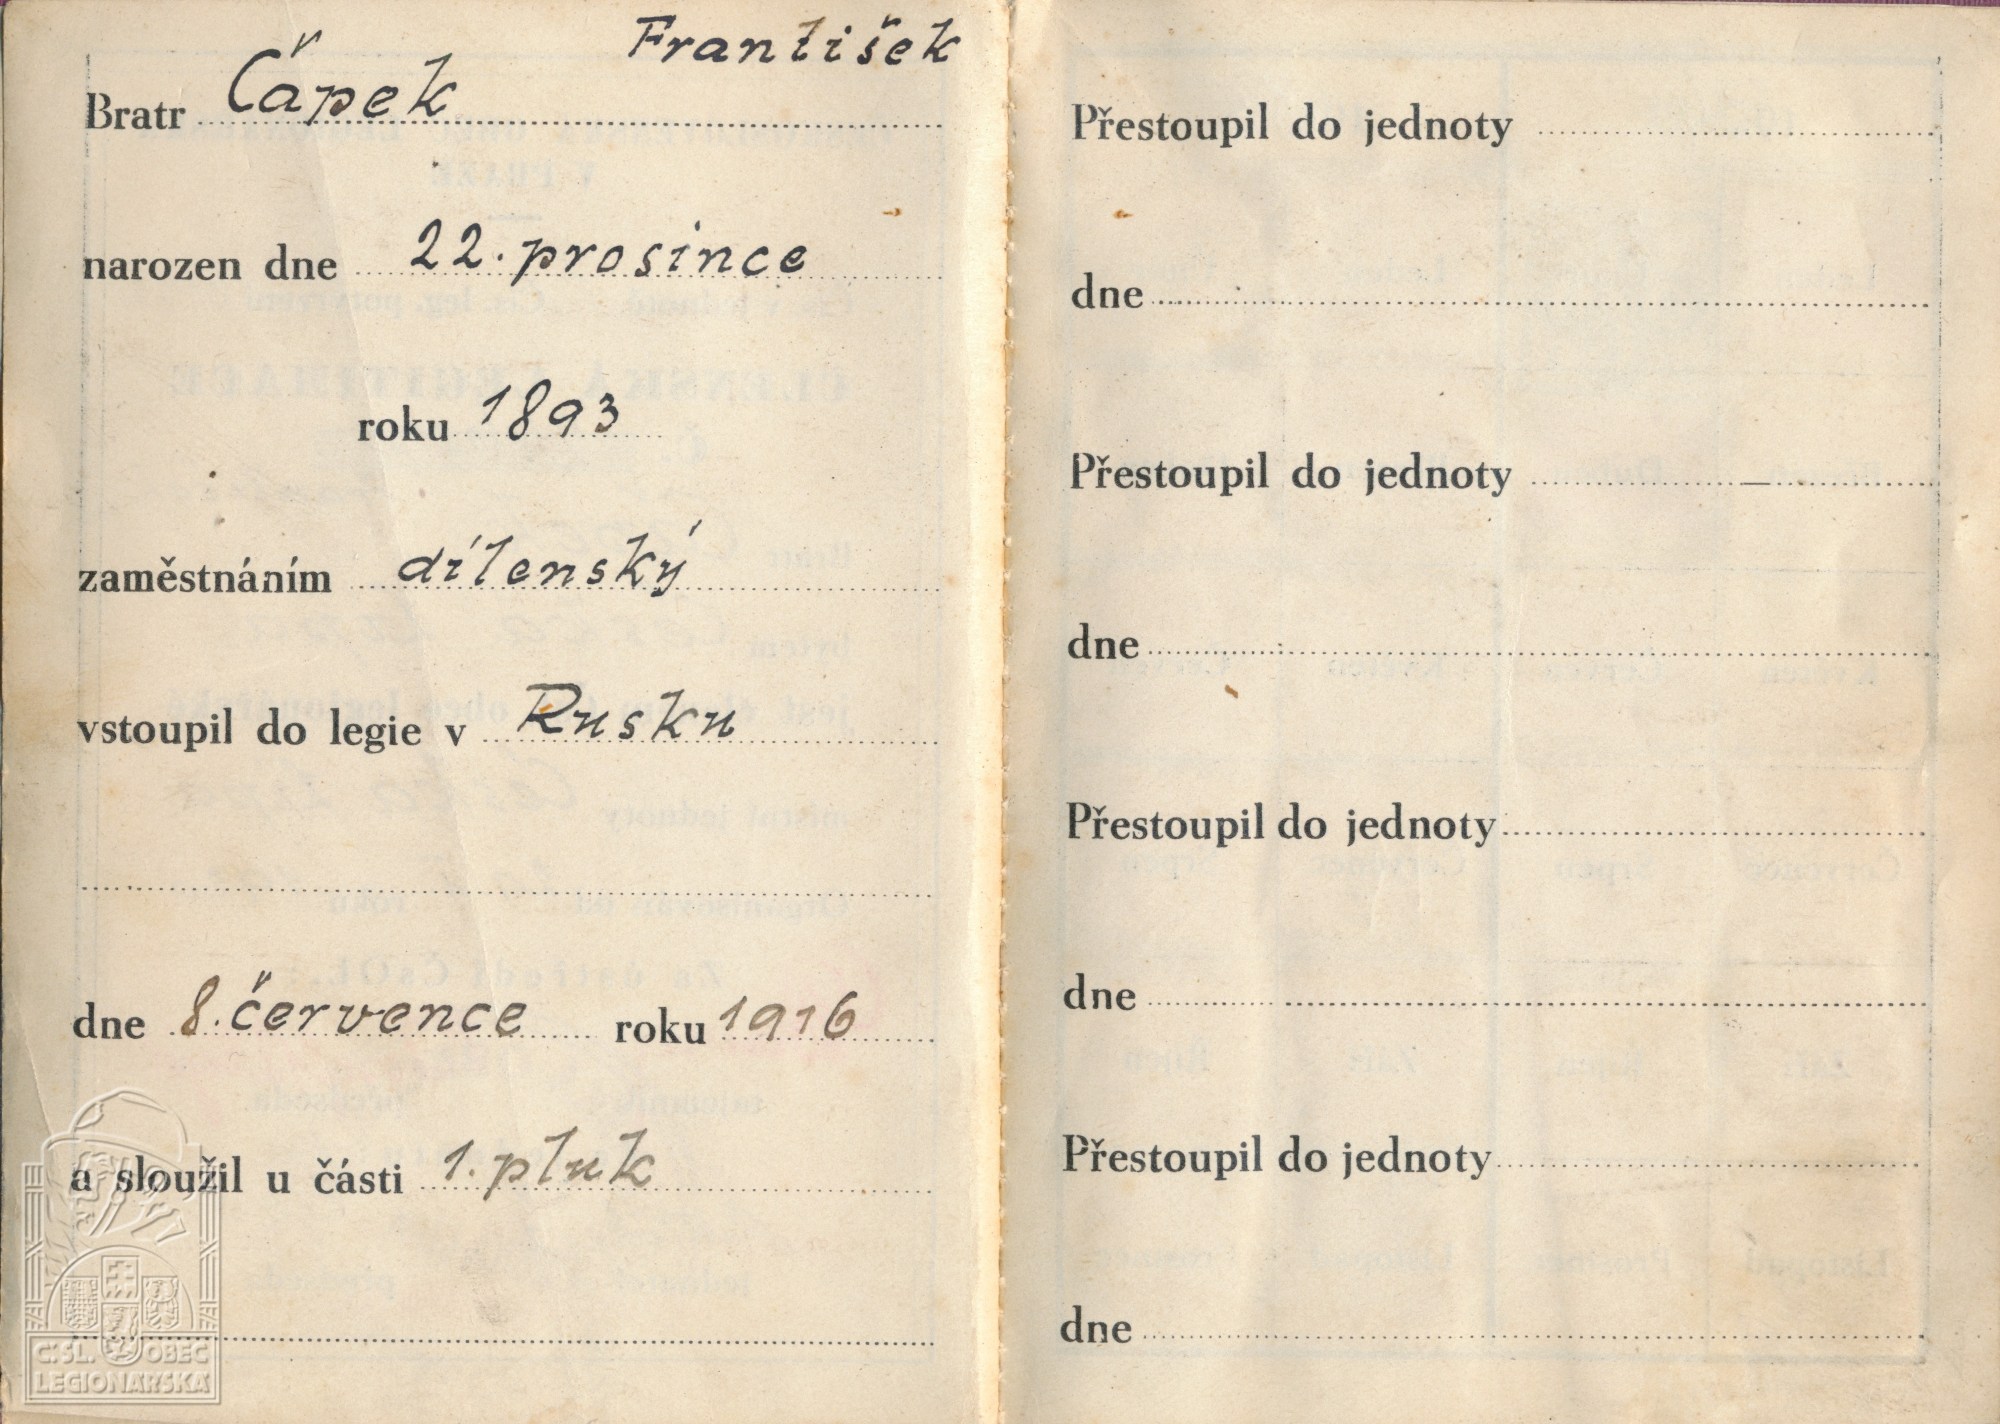 František
Bratr Čápek
narozen dne 22. prosince
roku 1893
zaměstnáním dílenský
vstoupil do legie v Rusku
dne 8. července roku 1916
a sloužil u části 1. pluk
Č. SL. OBEC
LEGIONÁŘSKÁ
Přestoupil do jednoty
dne
Přestoupil do jednoty
dne
Přestoupil do jednoty
dne
Přestoupil do jednoty
dne